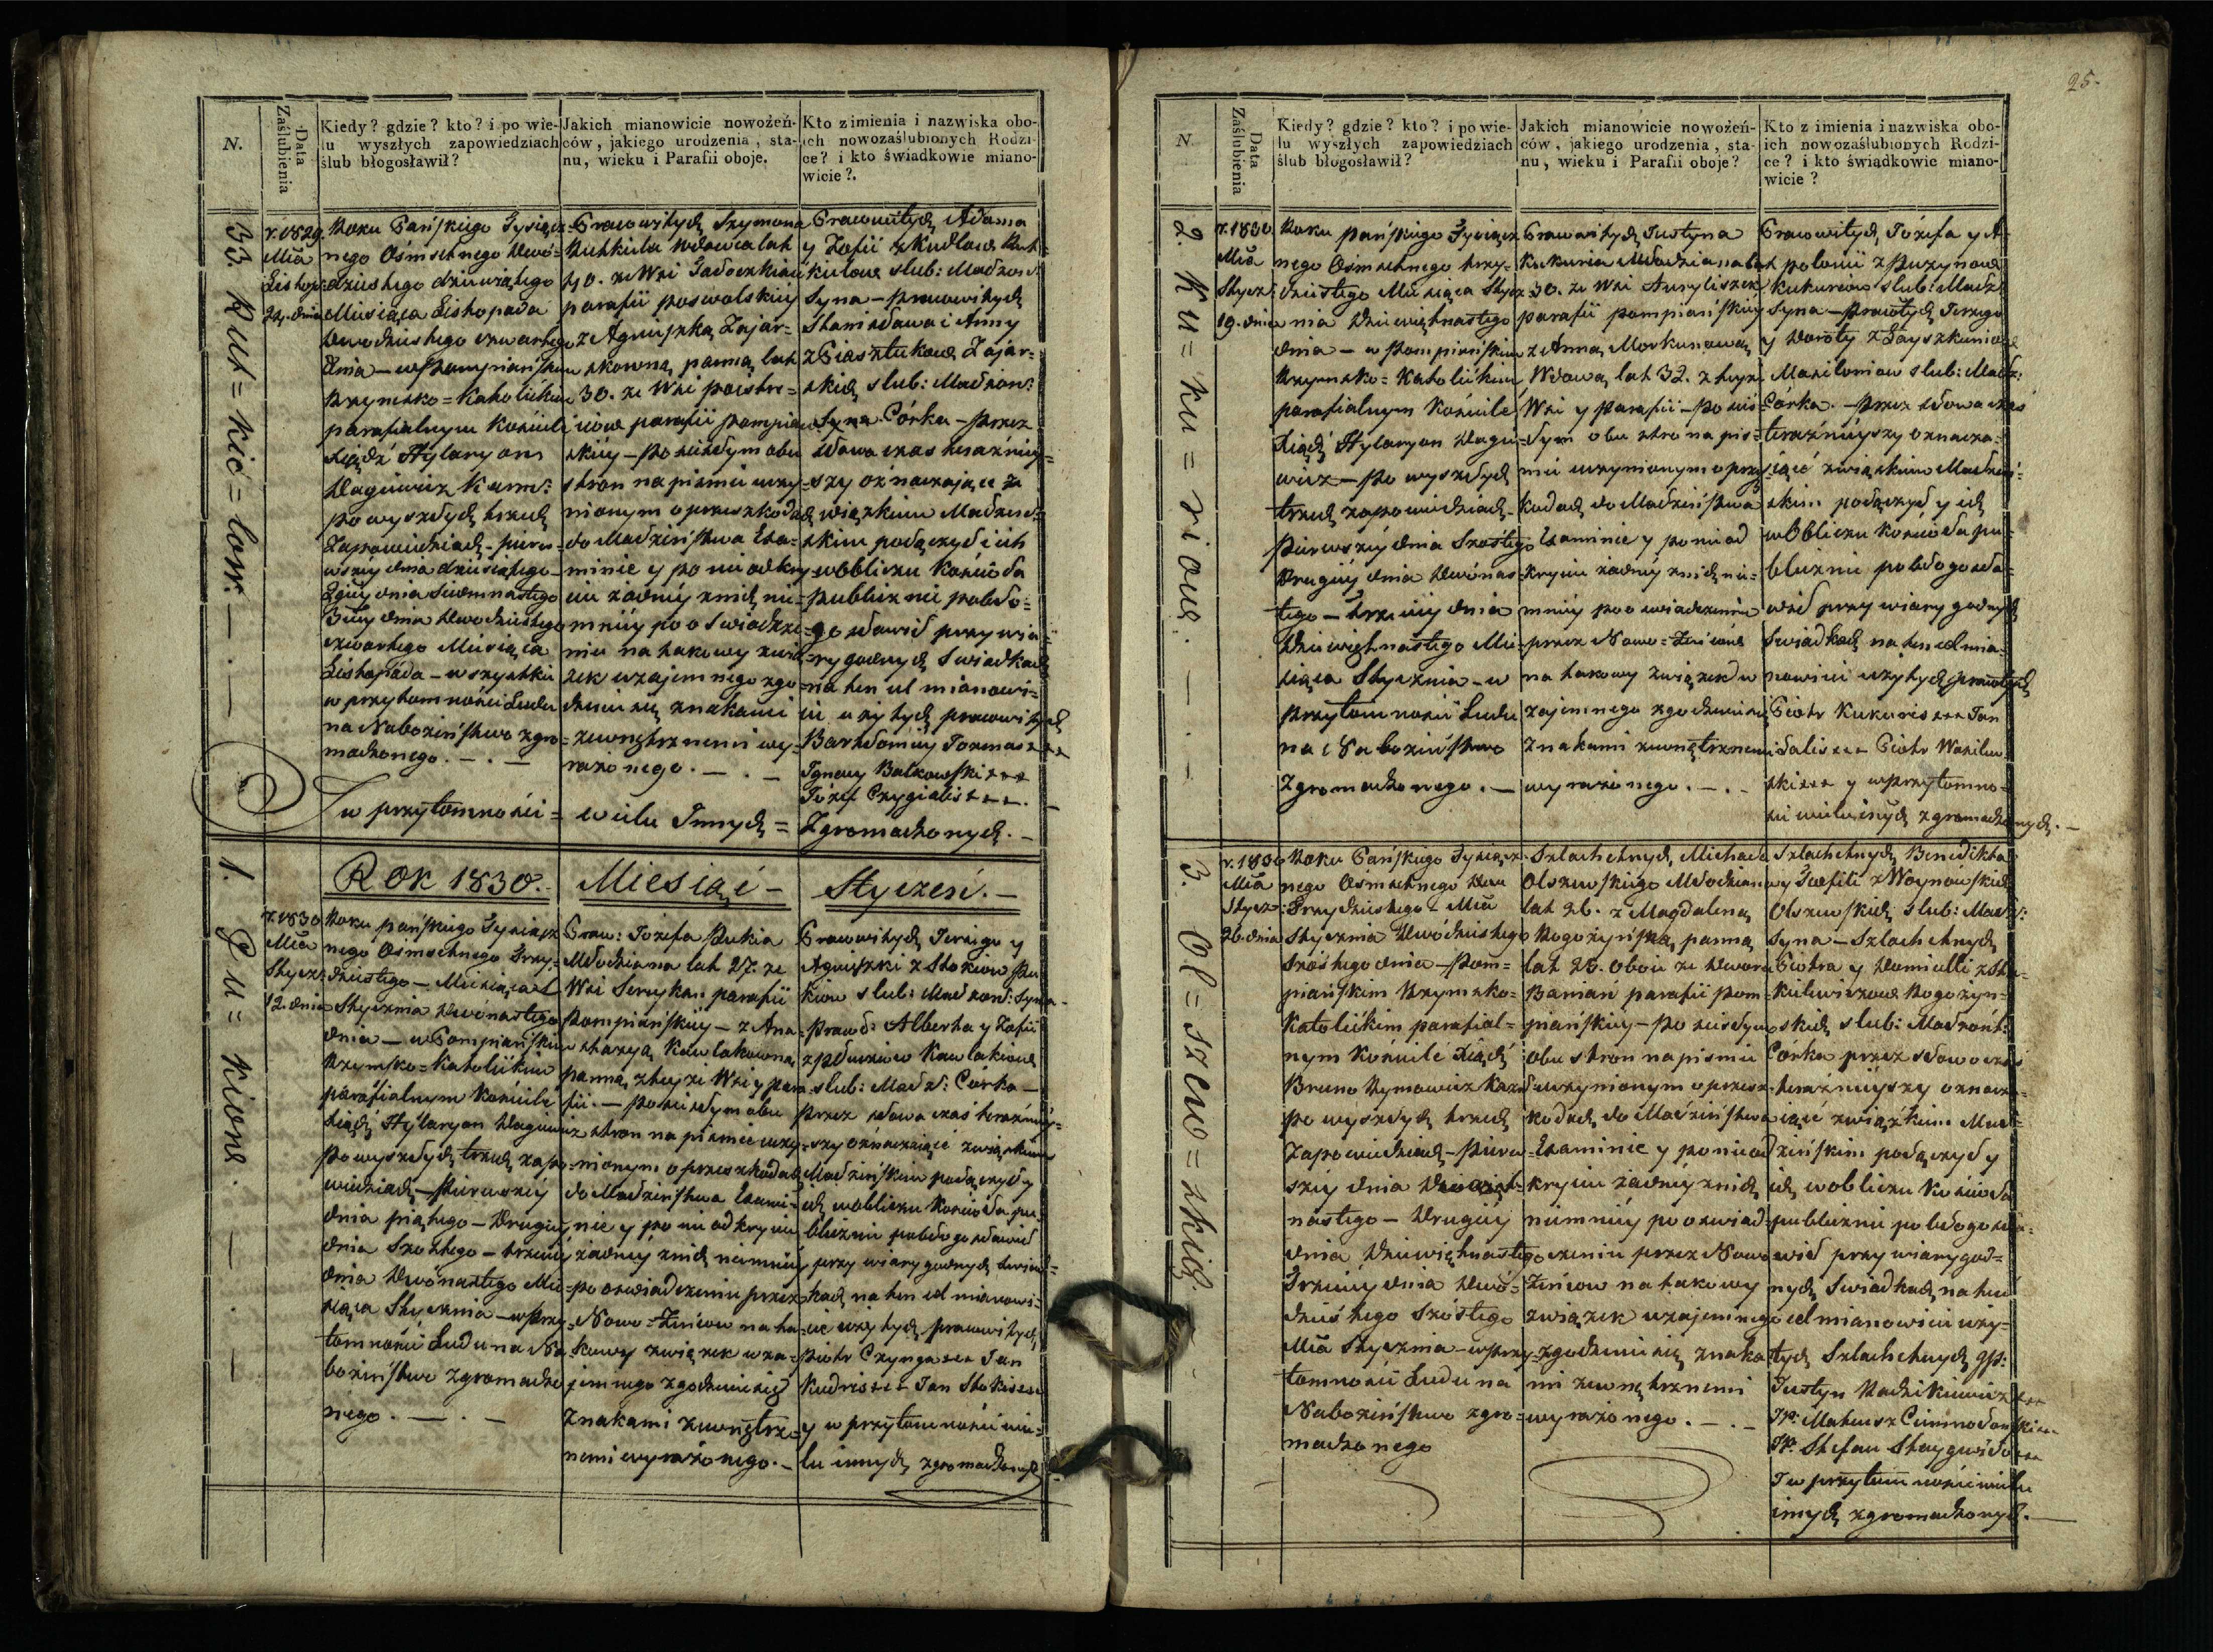 25.
N.
Data Zaślubienia
Kiedy? gdzie? kto? i po wie-
lu wyszłych zapowiedziach
ślub błogosławił?
Jakich mianowicie nowożeń-
ców, jakiego urodzenia, sta-
nu, wieku i Parafii oboje.
Kto z imienia i nazwiska obo-
ich nowozaślubionych Rodzi-
ce? i kto świadkowie miano-
wicie?.
33.
r. 1829.
24. dnia
Roku Pańskiego Tysiącz-
nego Ośmsetnego Dwó-
dziestego dziewiątego
Miesiąca Listopada
Dwodziestego czwartego
Dnia — w Pompiańskim
Rzymsko=Katolickim
parafialnym Kościele
Xiądz Hylaryon
po wyszłych trzech
Zapowiedziach - pierw-
wszey dnia dziesiątego
2giey dnia Siedmnastego
3ciey dnia Dwodziestego
czwartego Miesiąca
Listopada - wszystkie
w przytomności Ludu
na Nabożeństwo zgro-
madzonego. — . —
Prawowitych Szymona
40. ze Wsi
z Agnieszką Zajar-
skowną panną lat
30. ze Wsi
parafii pompian-
skiey - po ścisłym obu
stron na piśmie uczy-
nionym o przeszkodach
do Małżeństwa Exa-
minie y po nieodkry-
ciu żadney z nich nie-
mniey po oświadcze-
niu na takowy zwią-
zek wzajemnego zgo-
dzenia się znakami
zewnętrznemi wy-
rażonego. — . —
Prawowitych Adama
y Zofii
Syna - prawowitych
Stanisława i Anny
Córka - przez
słowa czas teraźniey-
szy oznaczające
związkiem Małżeń-
skim połączył i ich
w obliczu Kościoła
publicznie pobło-
gosławił przy wia-
rygodnych Swiadkach
na ten cel mianowi-
cie użytych prawowitych
Ignacy Balkowski +++
Józef Czygielis +++.
w przytomności = wielu Innych = Zgromadzonych. —
ROK 1830. Miesiąc — Styczeń. —
1.
r. 1830
12. dnia
Roku pańskiego Tysiącz-
nego Osmsetnego Trzy-
dziestego — Miesiąca
Stycznia Dwónastego
dnia — w Pompiańskim
Rzymsko=Katolickim
parafialnym Kościele
Xiądz Hylaryon
po wyszłych trzech zapo-
wiedziach - Pierwszey
dnia piątego - Drugiey
dnia Szóstego - trzeciey
dnia Dwónastego Mie-
siąca Stycznia - w przy-
tomności Ludu na Na-
bożeństwo zgromadzo-
nego. — . —
Praw: Jozefa
Młodziana lat 27. ze
Wsi parafii
Pompiańskiey - z Ana-
stazyą Kawlakowną
panną z teyże Wsi y para-
fii. - po ścisłym obu
stron na piśmie uczy-
nionym o przeszkodach
do Małżeństwa Exami-
nie y po nieodkryciu
żadney z nich niemniey
po oświadczeniu przez
Nowo=Żeńców na ta-
kowy związek wza-
jemnego zgodzenia się
znakami zewnętrz-
nemi wyrażonego. —
Prawowitych Jerzego y
Agnieszki z
praw: Alberta y Zofii
slub: Małż: Córka —
przez słowa czas teraźniey-
szy oznaczające związkiem
Małżeńskim połączył y
ich w obliczu Kościoła pu-
blicznie pobłogosławił
przy wiarygodnych Swiad-
kach na ten cel mianowi-
cie użytych prawowitych
Piotr Czynga +++ Jan
Kudris +++ Jan Stokis +++
y w przytomności wie-
lu innych zgromadzonych
N.
Data Zaślubienia
Kiedy? gdzie? kto? i po wie-
lu wyszłych zapowiedziach
ślub błogosławił?
Jakich mianowicie nowożeń-
ców, jakiego urodzenia, sta-
nu, wieku i Parafii oboje?
Kto z imienia i nazwiska obo-
ich nowozaślubionych Rodzi-
ce? i kto świadkowie miano-
wicie?
2. Ku=ku=riow.
r. 1830
19. dnia
Roku pańskiego Tysiącz-
nego Ośmsetnego trzy-
dziestego Miesiąca Stycz-
nia Dziewiętnastego
dnia — w Pompiańskim
Rzymsko=Katolickim
parafialnym Kościele
Xiądz Hylaryon
po wyszłych
trzech zapowiedziach -
Pierwszey dnia Szóstego
Drugiey dnia Dwónas-
tego - Trzeciey dnia
Dziewiętnastego Mie-
siąca Stycznia - w
przytomności Ludu
na Nabożeństwo
Zgromadzonego. —
Prawowitych Justyna
Kukuria Młodziana lat
30. ze Wsi
parafii pompiańskiey
z Anną Morkunową
Wdową lat 32. z teyże
Wsi y parafii - po ścis-
łym obu stron na piś-
mie uczynionym o przesz-
kodach do Małżeństwa
Examinie y po nieod-
kryciu żadney z nich nie-
mniey po oświadczeniu
przez Nowo=Żeńców
na takowy związek w
zajemnego zgodzenia się
znakami zewnętrznemi
wyrażonego. — . —
Prawowitych Józefa y A-
polonii z
Kukurow slub: Małż:
Syna - Jerzego
y Doroty z
slub: Małż:
Córka. - przez słowa czas
teraźnieyszy oznacza-
jące związkiem Małżeń-
skim połączył y ich
w obliczu Kościoła pu-
blicznie pobłogosła-
wił przy wiarygodnych
Swiadkach na ten cel mia-
nowicie użytych
Piotr Kukuris +++ Jan
+++ Piotr
+++ y w przytomno-
ści wielu innych zgromadzonych. —
3. Ol=szew=skich
r. 1830
26 dnia
Roku Pańskiego Tysiącz-
nego Ośmsetnego
Trzydziestego - Mca
Stycznia Dwódziestego
Szóstego dnia - Pom-
piańskim Rzymsko-
Katolickim parafial-
nym Kościele Xiądz
Bruno Rymowicz
po wyszłych trzech
Zapowiedziach - Pierw-
szey dnia
nastego - Drugiey
dnia Dziewiętnastego
Trzeciey dnia Dwó-
dziestego Szóstego
Mca Stycznia - w przy-
tomności Ludu na
Nabożeństwo zgro-
madzonego
Szlachetnych Michała
Olszewskiego Młodziana
lat 26. z Magdaleną
Rogożyńską panną
lat 25. Oboie ze Dworu
parafii Pom-
piańskiey - po ścisłym
obu stron na piśmie
uczynionym o przesz-
kodach do Małżeństwa
Examinie y po nieod-
kryciu żadney z nich
niemniey po oświad-
czeniu przez Nowo
Żeńcow na takowy
związek wzajemnego
zgodzenia się znaka-
mi zewnętrznemi
wyrażonego. — . —
Szlachetnych Benedikta
y Teofili z Woynowskich
Olszewskich slub: Małż:
Syna - Szlachetnych
Piotra y
Rogożyn-
skich slub: Małżeń:
Córka przez słowo czas
teraźnieyszy oznacza-
jące związkiem Mał-
żeńskim połączył y
ich w obliczu Kościoła
publicznie pobłogosła-
wił przy wiarygod-
nych Swiadkach na ten
cel mianowicie uży-
tych Szlachetnych
Justyn
JP. Mateusz
JP. Stefan
I w przytomności wielu
innych zgromadzonych. —